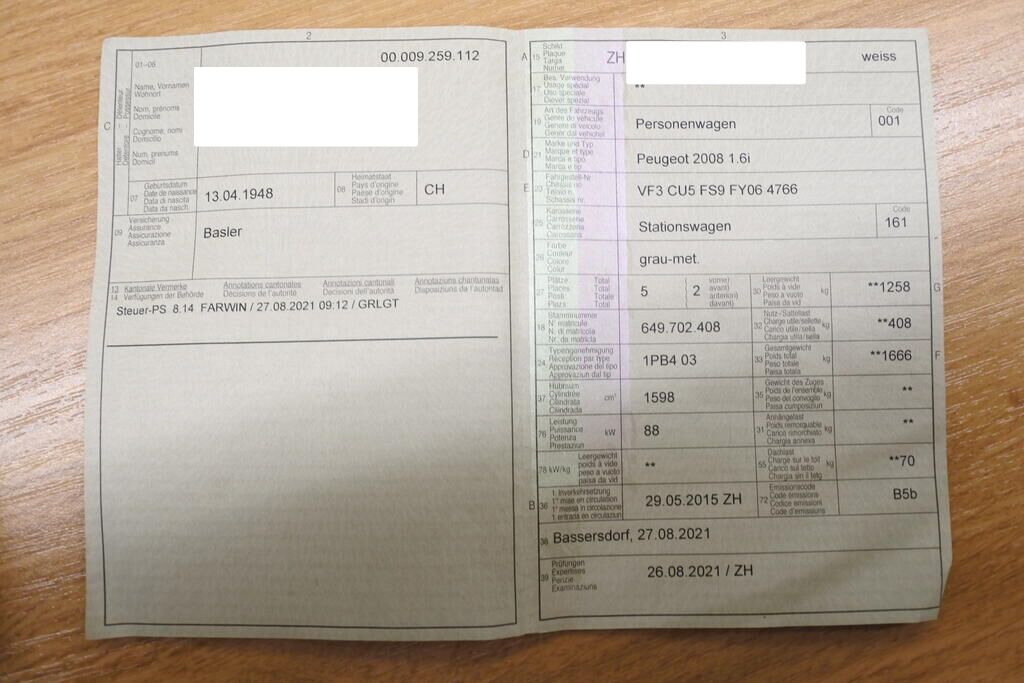 2
00.009.259.112
01-06
Name, Vornamen
Wohnort
Nom, prénoms
Domicile
Cognome, nomi
Domicilio
Num, prenums
Domicil
C
07
Geburtsdatum
Date de naissance
Data di nascita
Data da nasch.
13.04.1948
08
Heimatstaat
Pays d'origine
Paese d'origine
Stadi d'origin
CH
09
Versicherung
Assurance
Assicurazione
Assicuranza
Basler
13 Kantonale Vermerke
14 Verfügungen der Behörde
Annotations cantonales
Décisions de l'autorité
Annotazioni cantonali
Decisioni dell'autorità
Annotaziuns chantunalas
Disposiziuns da l'autoritad
Steuer-PS 8.14 FARWIN / 27.08.2021 09:12 / GRLGT
3
A 15
Schild
Plaque
Targa
Numer
ZH
weiss
17
Bes. Verwendung
Usage spécial
Uso speciale
Diever spezial
**
19
Art des Fahrzeugs
Genre de véhicule
Genere di veicolo
Gener dal vehichel
Personenwagen
Code
001
D 21
Marke und Typ
Marque et type
Marca e tipo
Marca e tip
Peugeot 2008 1.6i
E 23
Fahrgestell-Nr.
Châssis no
Telaio n.
Schassis nr.
VF3 CU5 FS9 FY06 4766
25
Karosserie
Carrosserie
Carrozzeria
Carossaria
Stationswagen
Code
161
26
Farbe
Couleur
Colore
Colur
grau-met.
27
Plätze: Total
Places: Total
Posti: Totale
Plazs: Total
5
2
vorne)
avant)
anteriori)
davant)
30
Leergewicht
Poids à vide
Peso a vuoto
Paisa da vid
kg
**1258
G
18
Stammnummer
N° matricule
N. di matricola
Nr. da matricla
649.702.408
32
Nutz-/Sattellast
Charge utile/sellette
Carico utile/sella
Chargia utila/sella
kg
**408
24
Typengenehmigung
Réception par type
Approvazione del tipo
Approvaziun dal tip
1PB4 03
33
Gesamtgewicht
Poids total
Peso totale
Paisa totala
kg
**1666
F
37
Hubraum
Cylindrée
Cilindrata
Cilindrada
cm³
1598
35
Gewicht des Zuges
Poids de l'ensemble
Peso del convoglio
Paisa cumposiziun
kg
**
76
Leistung
Puissance
Potenza
Prestaziun
kW
88
31
Anhängelast
Poids remorquable
Carico rimorchiato
Chargia annexa
kg
**
78 kW/kg
Leergewicht
poids à vide
peso a vuoto
paisa da vid
**
55
Dachlast
Charge sur le toit
Carico sul tetto
Chargia sin il tetg
kg
**70
B 36
1. Inverkehrsetzung
1re mise en circulation
1a messa in circolazione
1. entrada en circulaziun
29.05.2015 ZH
72
Emissionscode
Code émissions
Codice emissioni
Code d'emissiuns
B5b
38
Bassersdorf, 27.08.2021
39
Prüfungen
Expertises
Perizie
Examinaziuns
26.08.2021 / ZH